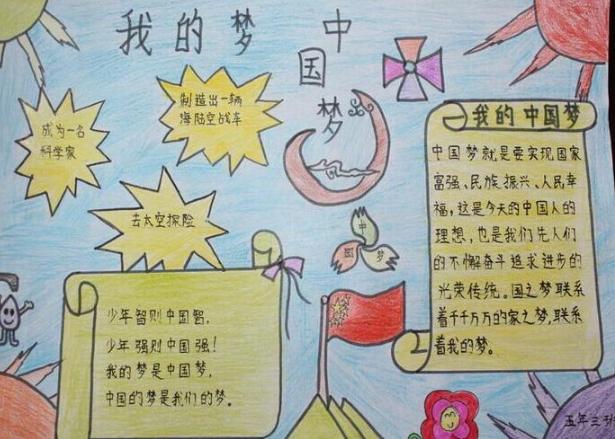 我的梦 中
国
梦
成为一名
科学家
制造出一辆
海陆空战车
去太空探险
中
国 梦
一我的中国梦
中国梦就是要实现国家
富强、民族振兴、人民幸
福,这是今天的中国人的
理想,也是我们先人们
的不懈奋斗追求进步的
光荣传统。国之梦联系
着千千万万的家之梦,联系
着我的梦。
少年智则中国智,
少年强则中国强!
我的梦是中国梦,
中国的梦是我们的梦。
五年三